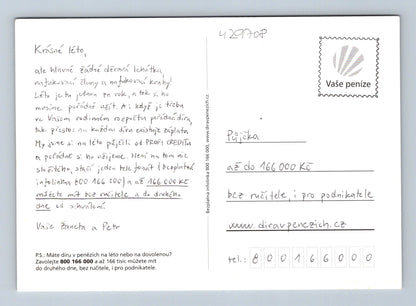 Krásné léto,
ale hlavně žádné děravé lehátka,
nafukovací čluny a nafukovací kruhy!
Léto je tu jednou za rok, a tak si ho
musíme pořádně užít. A i když je třeba
ve Vašem rodinném rozpočtu pořádná díra,
tak přesto na každou díru existuje záplata.
My jsme si na léto půjčili od PROFI CREDITu
a pořádně si ho užijeme. Není na tom nic
složitého, stačí jeden telefonát (bezplatná
infolinka 800 166 000) a až 166 000 Kč
můžete mít bez ručitele a do druhého
dne od schválení.
Vaše Žaneta a Petr
P.S.: Máte díru v penězích na léto nebo na dovolenou?
Zavolejte 800 166 000 a až 166 tisíc můžete mít
do druhého dne, bez ručitele, i pro podnikatele.
Bezplatná infolinka 800 166 000, www.diravpenezich.cz
42970P
Vaše peníze
Půjčka
až do 166 000 Kč
bez ručitele, i pro podnikatele
www.diravpenezich.cz
tel.: 800166000